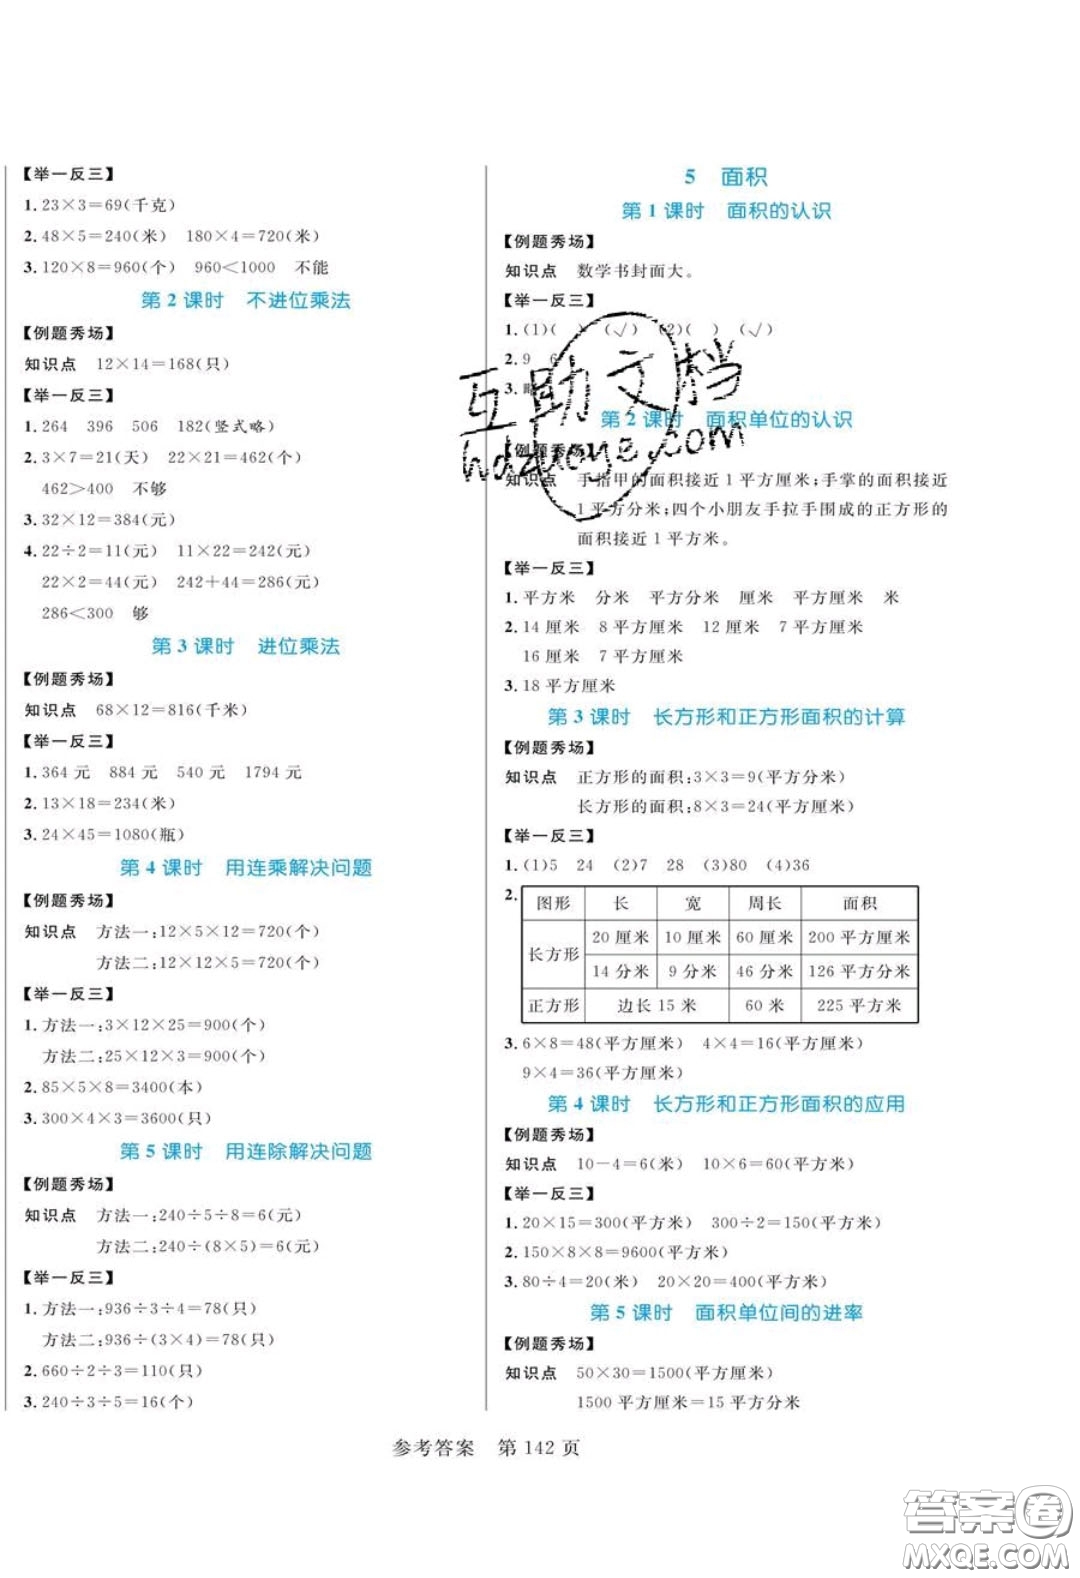 【举一反三】
1.23×3=69(千克)
2.48×5=240(米)  180×4=720(米)
3.120×8=960(个)  960<1000  不能
第 2 课时  不进位乘法
【例题秀场】
知识点  12×14=168(只)
【举一反三】
1.264  396  506  182(竖式略)
2.3×7=21(天)  22×21=462(个)
462>400  不够
3.32×12=384(元)
4.22÷2=11(元)  11×22=242(元)
22×2=44(元)  242+44=286(元)
286<300  够
第 3 课时  进位乘法
【例题秀场】
知识点  68×12=816(千米)
【举一反三】
1.364 元  884 元  540 元  1794 元
2.13×18=234(米)
3.24×45=1080(瓶)
第 4 课时  用连乘解决问题
【例题秀场】
知识点  方法一:12×5×12=720(个)
方法二:12×12×5=720(个)
【举一反三】
1.方法一:3×12×25=900(个)
方法二:25×12×3=900(个)
2.85×5×8=3400(本)
3.300×4×3=3600(只)
第 5 课时  用连除解决问题
【例题秀场】
知识点  方法一:240÷5÷8=6(元)
方法二:240÷(8×5)=6(元)
【举一反三】
1.方法一:936÷3÷4=78(只)
方法二:936÷(3×4)=78(只)
2.660÷2÷3=110(只)
3.240÷3÷5=16(个)
5  面积
第 1 课时  面积的认识
【例题秀场】
知识点  数学书封面大。
【举一反三】
1.(1)(  )  (√)  (2)(  )  (√)
2.9  6
3.略
第 2 课时  面积单位的认识
【例题秀场】
知识点  手指甲的面积接近 1 平方厘米;手掌的面积接近
1 平方分米;四个小朋友手拉手围成的正方形的
面积接近 1 平方米。
【举一反三】
1.平方米  分米  平方分米  厘米  平方厘米  米
2.14 厘米  8 平方厘米  12 厘米  7 平方厘米
16 厘米  7 平方厘米
3.18 平方厘米
第 3 课时  长方形和正方形面积的计算
【例题秀场】
知识点  正方形的面积:3×3=9(平方分米)
长方形的面积:8×3=24(平方分米)
【举一反三】
1.(1)5  24  (2)7  28  (3)80  (4)36
2.
图形  长  宽  周长  面积
长方形  20 厘米  10 厘米  60 厘米  200 平方厘米
14 分米  9 分米  46 分米  126 平方分米
正方形  边长 15 米  60 米  225 平方米
3.6×8=48(平方厘米)  4×4=16(平方厘米)
9×4=36(平方厘米)
第 4 课时  长方形和正方形面积的应用
【例题秀场】
知识点  10-4=6(米)  10×6=60(平方米)
【举一反三】
1.20×15=300(平方米)  300÷2=150(平方米)
2.150×8×8=9600(平方米)
3.80÷4=20(米)  20×20=400(平方米)
第 5 课时  面积单位间的进率
【例题秀场】
知识点  50×30=1500(平方厘米)
1500 平方厘米=15 平方分米
参考答案  第 142 页
互助文档
hdzuoye.com
答案卷
MXQE.COM